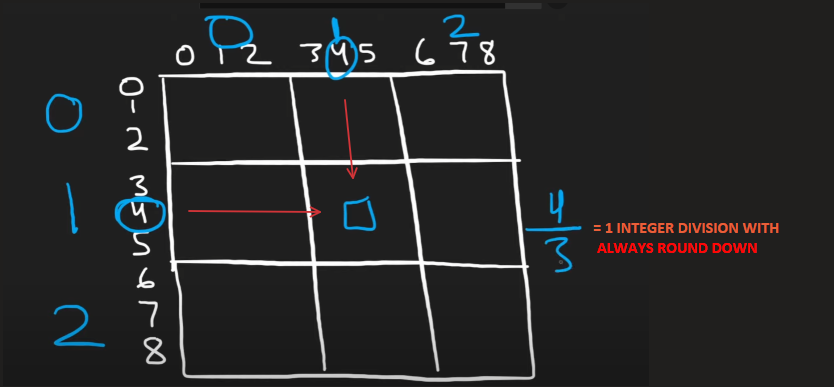 0 1 2
0 1 2 3 4 5 6 7 8
0
0
1
2
3
1
4
5
6
7
2
8
4
3
= 1 INTEGER DIVISION WITH
ALWAYS ROUND DOWN